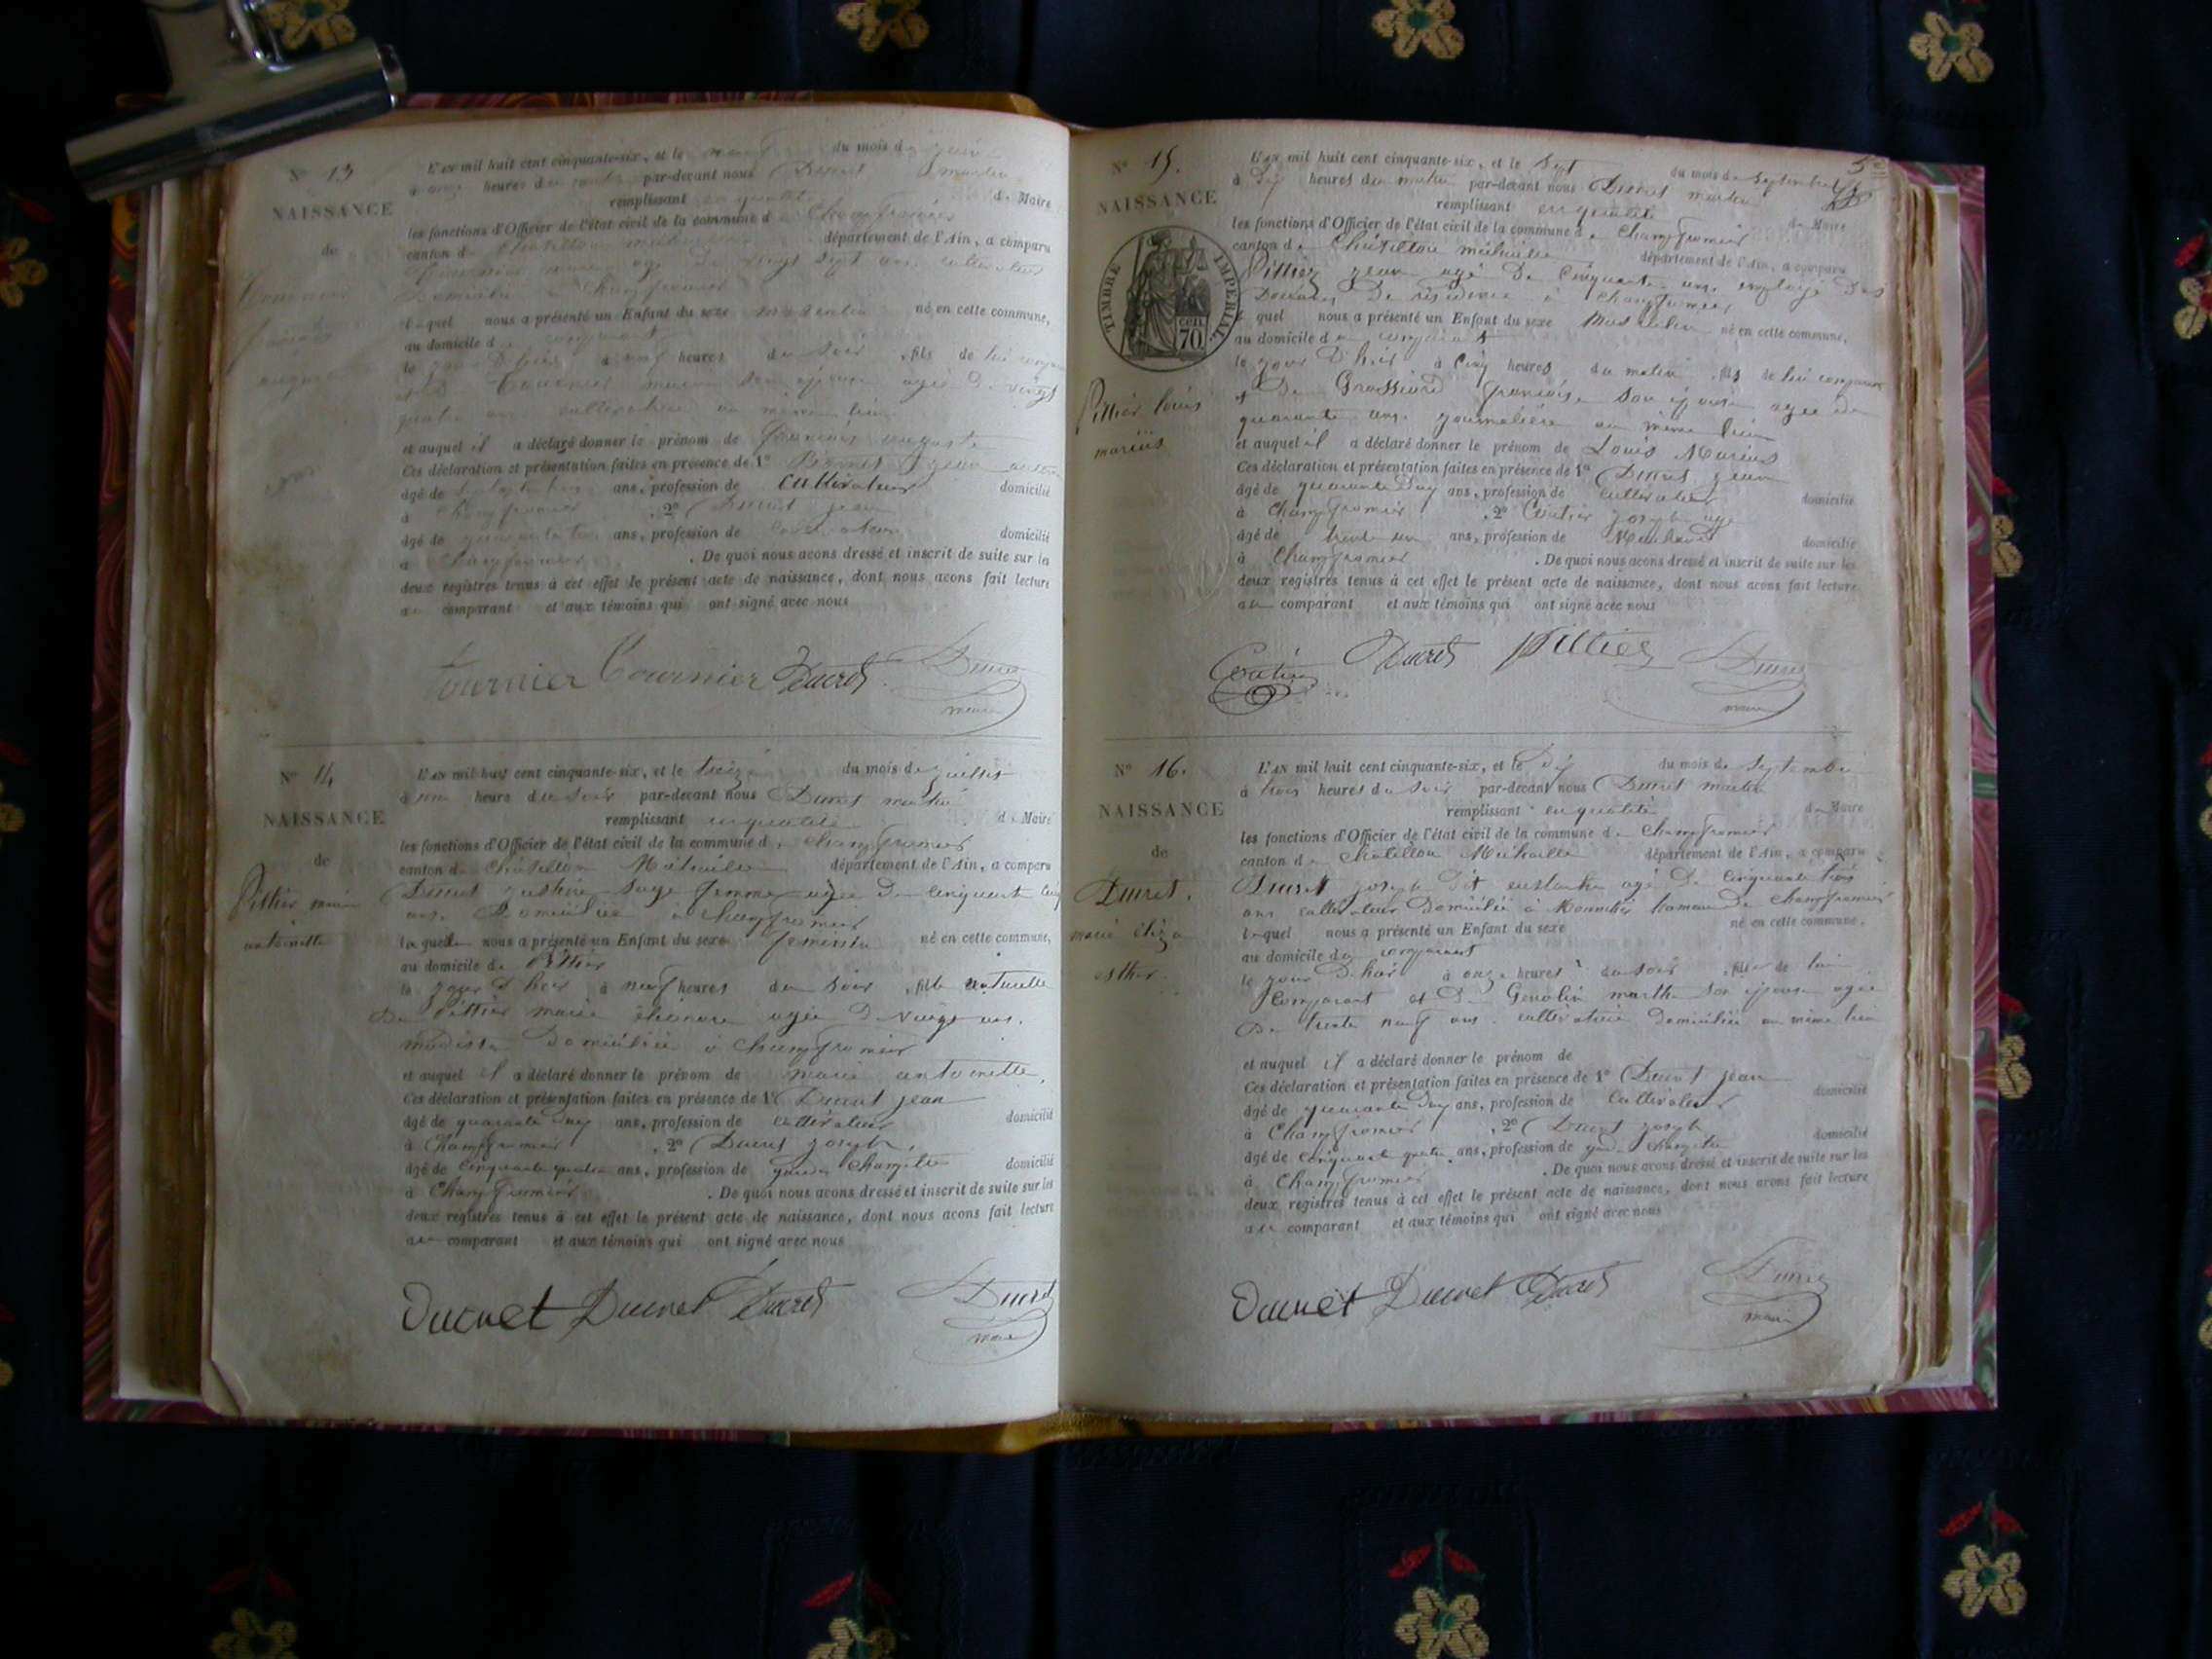 N° 13
NAISSANCE
de
L'AN mil huit cent cinquante-six, et le du mois de
heures du par-devant nous Ducret martin
remplissant en qualité de Maire
les fonctions d'Officier de l'état civil de la commune de Champfromier
canton de Chatillon michaille département de l'Ain, a comparu
agé de vingt sept ans cultivateur
Domicilié à Champfromier
lequel nous a présenté un Enfant du sexe masculin né en cette commune,
au domicile du comparant
le jour d'hier à neuf heures du soir, fils de lui comparant
et de Tournier son épouse agée de vingt
quatre ans cultivatrice au même lieu
et auquel il a déclaré donner le prénom de françois auguste
Ces déclaration et présentation faites en présence de 1°
âgé de ans, profession de Cultivateur domicilié
à Champfromier, 2° Ducret jean
âgé de ans, profession de cultivateur domicilié
à Champfromier. De quoi nous avons dressé et inscrit de suite sur les
deux registres tenus à cet effet le présent acte de naissance, dont nous avons fait lecture
au comparant et aux témoins qui ont signé avec nous
Tournier Tournier Ducret Ducret
maire
N° 14
NAISSANCE
de
Pittier marie
antoinette
L'AN mil huit cent cinquante-six, et le treize du mois de juillet
à une heure du soir par-devant nous Ducret martin
remplissant en qualité de Maire
les fonctions d'Officier de l'état civil de la commune de Champfromier
canton de Chatillon Michaille département de l'Ain, a comparu
Ducret justine sage femme agée de cinquante cinq
ans Domiciliée à Champfromier
laquelle nous a présenté un Enfant du sexe feminin né en cette commune,
au domicile de Pittier
le jour d'hier à neuf heures du soir, fille naturelle
de Pittier marie éléonore agée de vingt ans.
modiste domiciliée à Champfromier
et auquel il a déclaré donner le prénom de marie antoinette,
Ces déclaration et présentation faites en présence de 1° Ducret jean
âgé de quarante deux ans, profession de cultivateur domicilié
à Champfromier, 2° Ducret joseph,
âgé de cinquante quatre ans, profession de garde Champêtre domicilié
à Champfromier. De quoi nous avons dressé et inscrit de suite sur les
deux registres tenus à cet effet le présent acte de naissance, dont nous avons fait lecture
au comparant et aux témoins qui ont signé avec nous
Ducret Ducret Ducret Ducret
maire
5e
N° 15.
NAISSANCE
TIMBRE IMPÉRIAL
CEN. 70
Pittier louis
marius
L'AN mil huit cent cinquante-six, et le Sept du mois de Septembre
à dix heures du matin par-devant nous Ducret martin
remplissant en qualité de Maire
les fonctions d'Officier de l'état civil de la commune de Champfromier
canton de Châtillon michaille département de l'Ain, a comparu
Pittier jean agé de Cinquante ans, employé des
Douanes de résidence à Champfromier
quel nous a présenté un Enfant du sexe Masculin né en cette commune,
au domicile du comparant
le jour d'hier à cinq heures du matin, fils de lui comparant
et de Grossiord françoise son épouse agée de
quarante ans journalière au même lieu
et auquel il a déclaré donner le prénom de Louis Marius
Ces déclaration et présentation faites en présence de 1° Ducret jean
âgé de quarante deux ans, profession de cultivateur domicilié
à Champfromier, 2° Coutier joseph agé
âgé de trente un ans, profession de Marchand domicilié
à Champfromier. De quoi nous avons dressé et inscrit de suite sur les
deux registres tenus à cet effet le présent acte de naissance, dont nous avons fait lecture
au comparant et aux témoins qui ont signé avec nous
Coutier Ducret Pittier Ducret
maire
N° 16.
NAISSANCE
de
Ducret.
marie éliza
esther.
L'AN mil huit cent cinquante-six, et le dix du mois de Septembre
à trois heures du soir par-devant nous Ducret martin
remplissant en qualité de Maire
les fonctions d'Officier de l'état civil de la commune de Champfromier
canton de Chatillon Michaille département de l'Ain, a comparu
Ducret joseph dit agé de cinquante trois
ans cultivateur Domicilié à Monnetier hameau de Champfromier
lequel nous a présenté un Enfant du sexe né en cette commune.
au domicile du comparant
le jour d'hier à onze heures du soir, fille de lui
Comparant et de Genolin marthe son épouse agée
de trente neuf ans. cultivatrice domiciliée au même lieu
et auquel il a déclaré donner le prénom de
Ces déclaration et présentation faites en présence de 1° Ducret jean
âgé de quarante deux ans, profession de cultivateur domicilié
à Champfromier, 2° Ducret joseph
âgé de cinquante quatre ans, profession de garde champêtre domicilié
à Champfromier. De quoi nous avons dressé et inscrit de suite sur les
deux registres tenus à cet effet le présent acte de naissance, dont nous avons fait lecture
au comparant et aux témoins qui ont signé avec nous
Ducret Ducret Ducret Ducret
maire